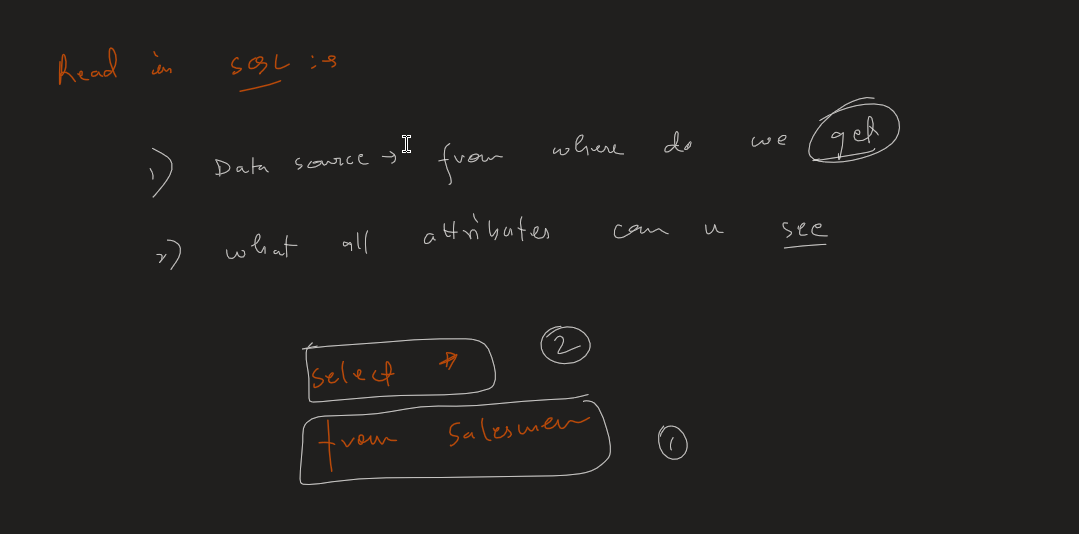 Read in SQL :-
1) Data source → from where do we get
2) what all attributes can u see
select * 2
from Salesmen 1